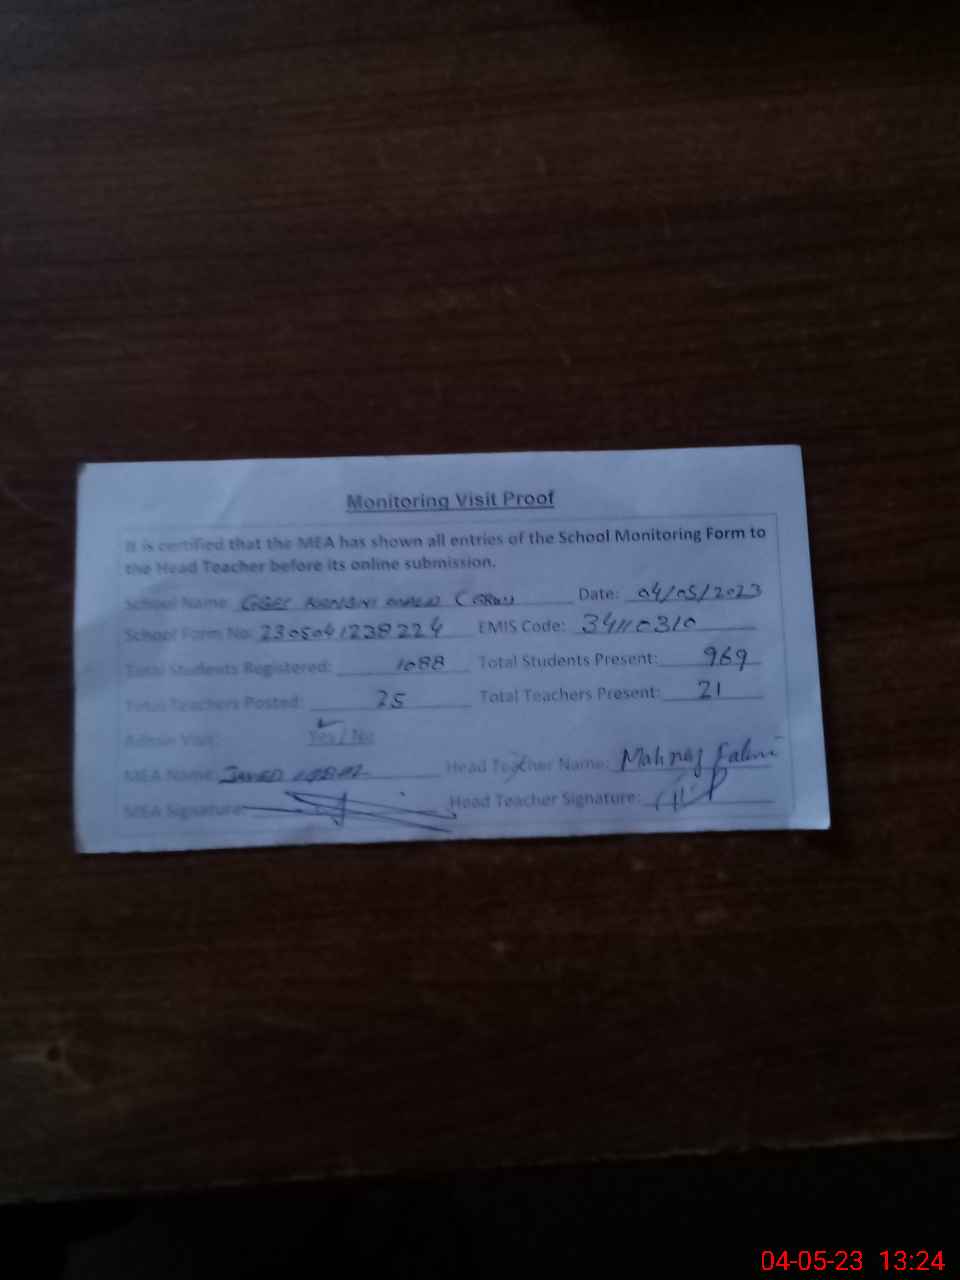 Monitoring Visit Proof
It is certified that the MEA has shown all entries of the School Monitoring Form to
the Head Teacher before its online submission.
School Name: GGES Date: 04/05/2023
School Form No: 2305041238224 EMIS Code: 34110310
Total Students Registered: 1088 Total Students Present: 969
Total Teachers Posted: 25 Total Teachers Present: 21
Admin Visit: Yes / No
MEA Name: JAVED IQBAL Head Teacher Name: Mahnaz
MEA Signature: Head Teacher Signature:
04-05-23 13:24